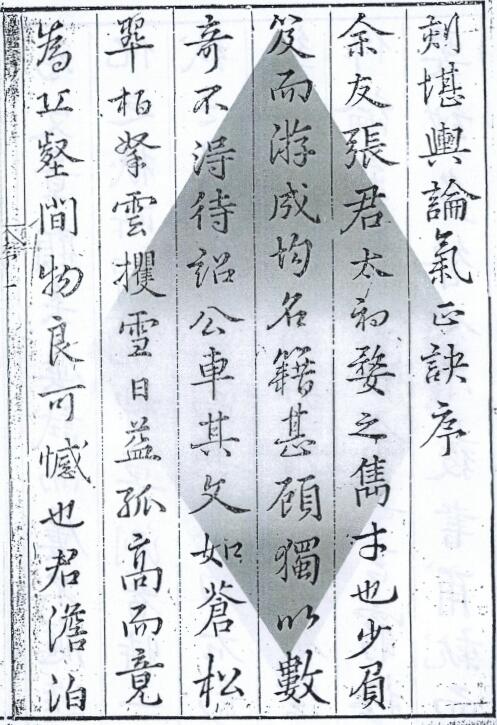 刻堪輿論氣正訣序
余友張君太初婺之雋才也少負
笈而游成均名籍甚顧獨以數
奇不得待詔公車其文如蒼松
翠柏拏雲攫雪日益孤高而竟
為丘壑間物良可憾也君澹泊